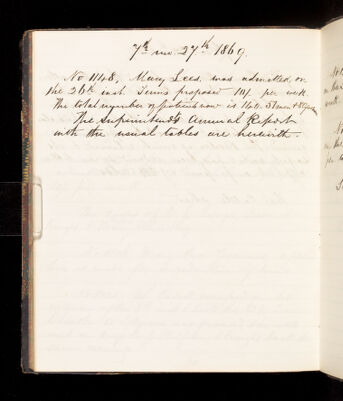 7th mo. 27th 1869.
No 1148, Mary Lees was admitted on
the 26th inst. Terms proposed 14/ per week
The total number of patients now is 140. 57 men &
The Superintendts Annual Report
with the usual tables are herewith.